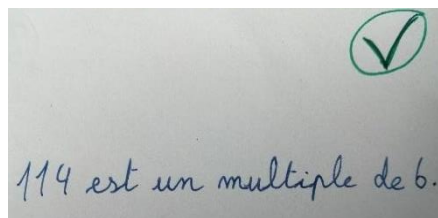 114 est un multiple de 6.